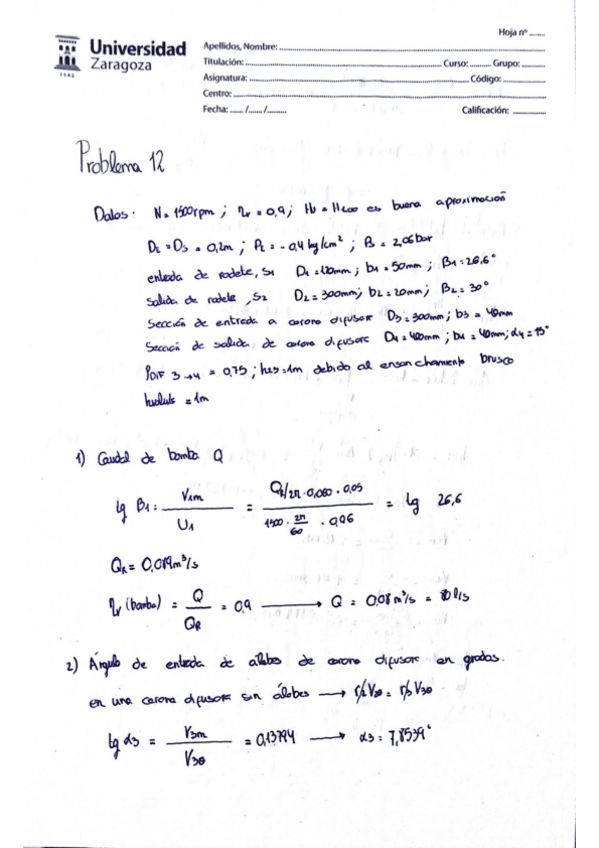 Hoja nº
Universidad
Zaragoza
1542
Apellidos, Nombre:
Titulación: Curso: Grupo:
Asignatura: Código:
Centro:
Fecha: / / Calificación:
Problema 12
Datos: N = 1500 rpm ; ηv = 0,9 ; Hb = H∞ es buena aproximación
DE = DS = 0,2m ; PE = -0,4 kg/cm² ; PS = 2,06 bar
entrada de rodete, S1 D1 = 120mm ; b1 = 50mm ; β1 = 26,6°
salida de rodete, S2 D2 = 300mm ; b2 = 20mm ; β2 = 30°
Sección de entrada a corona difusora D3 = 300mm ; b3 = 40mm
Sección de salida, de corona difusora D4 = 400mm ; b4 = 40mm ; α4 = 15°
3→4 = 0,75 ; = 1m debido al ensanchamiento brusco
= 1m
1) Caudal de bomba Q
tg β1 = V1m / U1 = QR/2π · 0,060 · 0,05 / 1500 · 2π/60 · 0,06 = tg 26,6
QR = 0,089 m³/s
ηv (bomba) = Q / QR = 0,9 → Q = 0,08 m³/s = 80 l/s
2) Ángulo de entrada de álabes de corona difusora en grados.
en una corona difusora sin álabes → r2 V2θ = r3 V3θ
tg α3 = V3m / V3θ = 0,13794 → α3 = 7,8539°